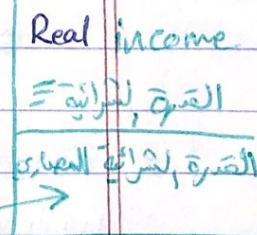 Real income
القدرة الشرائية =
القدرة الشرائية المصاري